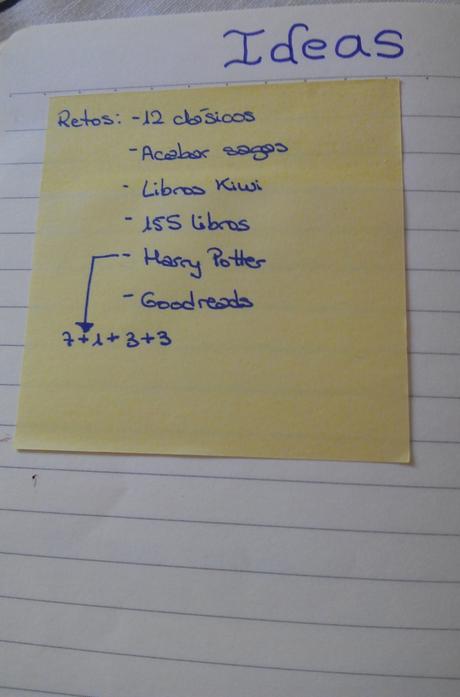 Ideas
Retos: - 12 clásicos
- Acabar sagas
- Libros Kiwi
- 155 libros
- Harry Potter
- Goodreads
7+1+3+3